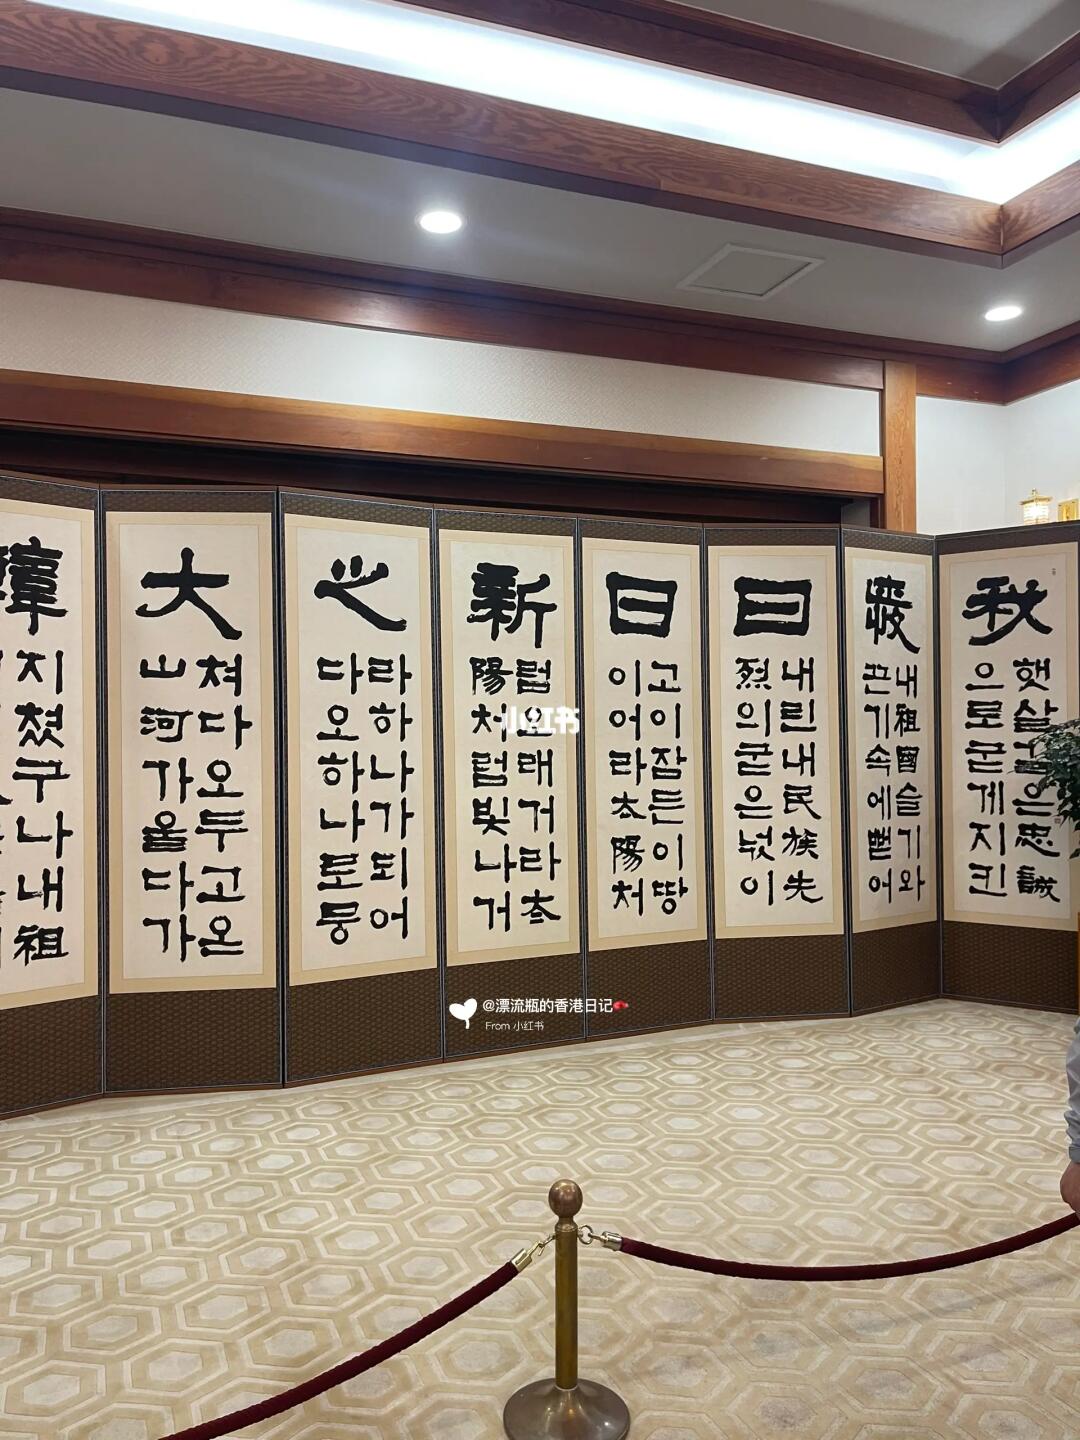 秋
햇살같은忠誠
으로굳게지킨
내祖國슬기와
끈기속에뻗어
日
내린내民族先
烈의굳은넋이
日
고이잠든이땅
이어라太陽처
新
럼오래거라太
陽처럼빛나거
心
라하나가되어
다오하나로뭉
大
쳐다오두고온
山河가옵다가
韓
지쳤구나내祖
小红书
@漂流瓶的香港日记
From 小红书